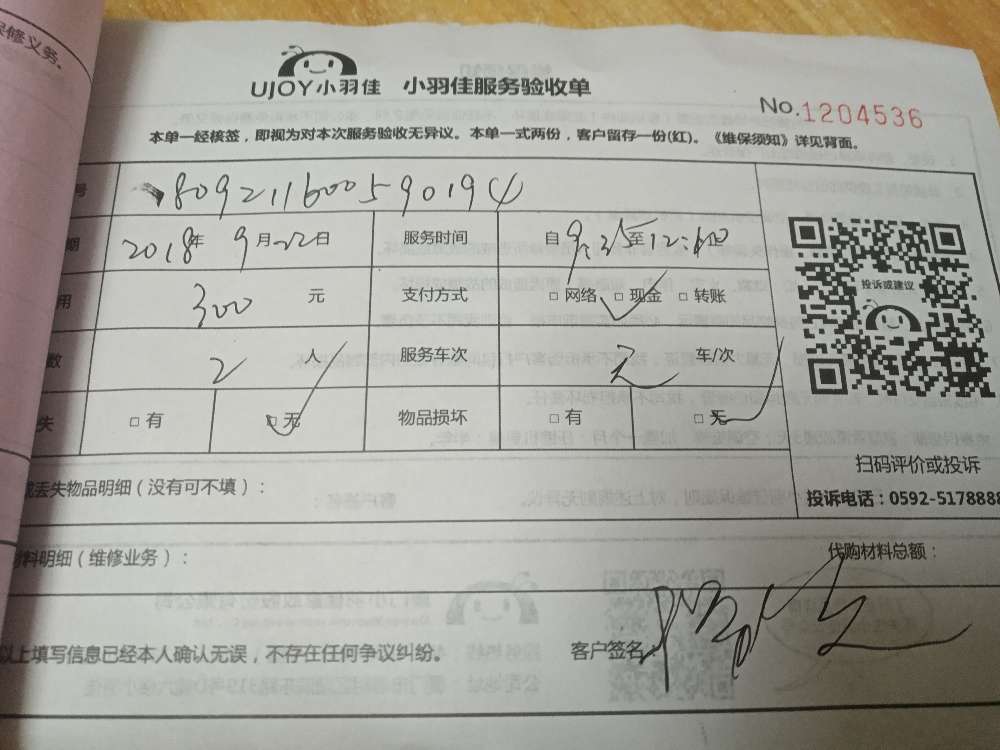 保修义务.
UJOY小羽佳 小羽佳服务验收单
No.1204536
本单一经核签，即视为对本次服务验收无异议。本单一式两份，客户留存一份(红)。《维保须知》详见背面。
号 809211600590194
期 2018年 9月22日 服务时间 自 至12:
用 300 元 支付方式 □网络 □现金 □转账
数 2 人 服务车次 车/次
失 □有 □无 物品损坏 □有 □无
投诉或建议
扫码评价或投诉
投诉电话：0592-5178888
或丢失物品明细（没有可不填）：
材料明细（维修业务）： 代购材料总额：
以上填写信息已经本人确认无误，不存在任何争议纠纷。 客户签名：